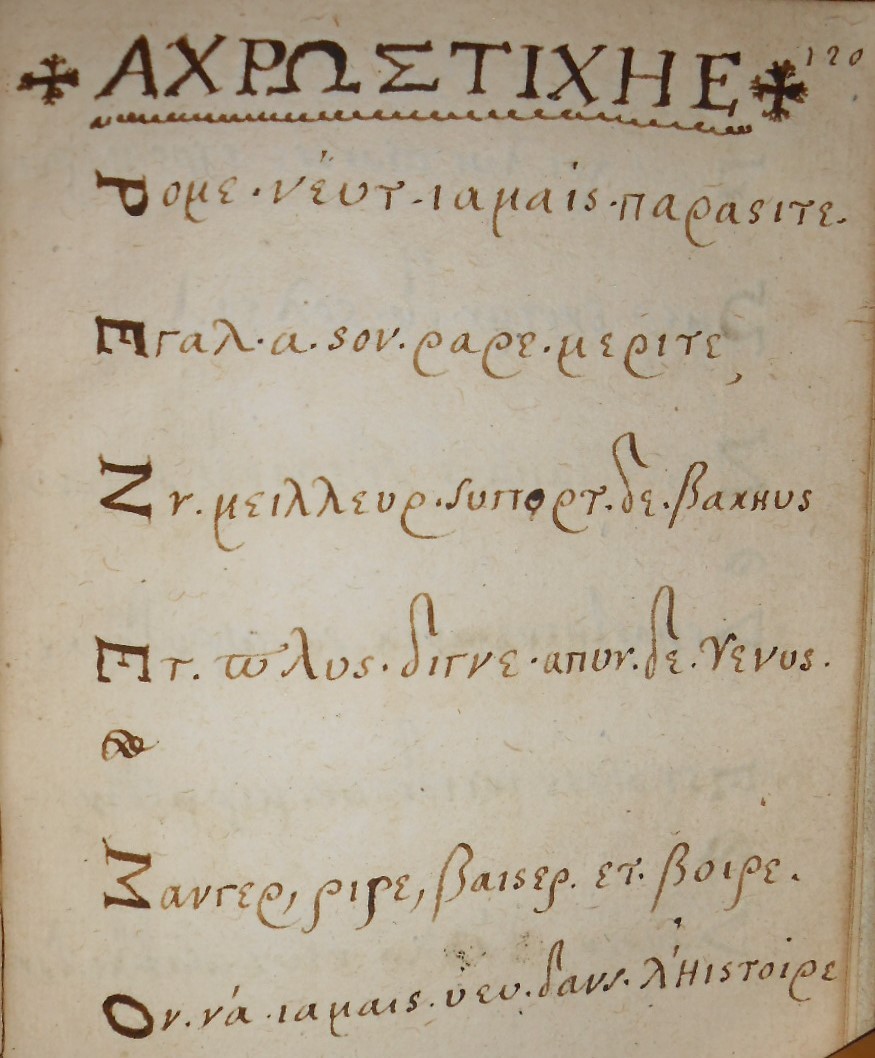 ΑΧΡΩΣΤΙΧΗΕ 120
Ρομε · νέυτ · ιαμαἰς · παραsιτε.
Εγαλ · α · sον · ραρε · μεριτε,
Νν · μειλλευρ · sυπορτ · δε · βακнυs
Ετ · πλυs · διγνε · απυν · δε · Υενυs.
&
Μανγερ, ριρε, βαιsερ · ετ · βοιρε.
Ον · ν'ά · ιαμαιs · ὑευ · δανs · λ'Ηιsτοἰρε